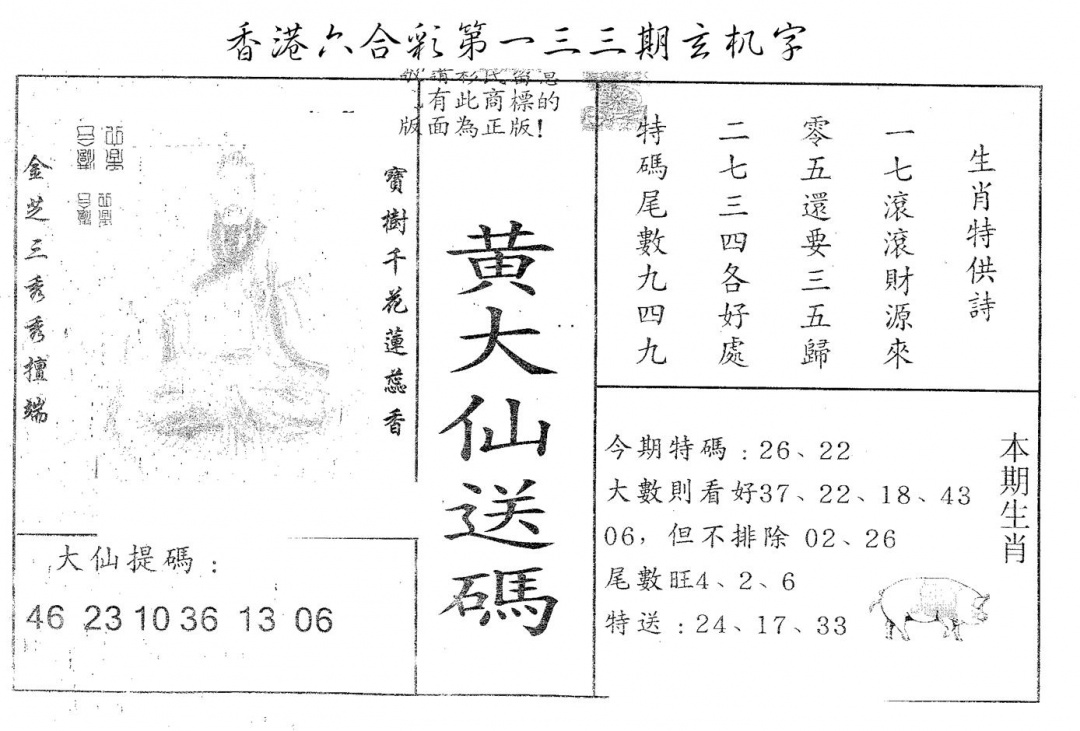 香港六合彩第一三三期玄机字
有此商標的
版面為正版!
生肖特供詩
一七滾滾財源來
零五還要三五歸
二七三四各好處
特碼尾數九四九
寶樹千花蓮蕊香
金芝三秀秀擅端
黃大仙送碼
本期生肖
今期特碼:26、22
大數則看好37、22、18、43
06,但不排除 02、26
尾數旺4、2、6
特送:24、17、33
大仙提碼:
46 23 10 36 13 06